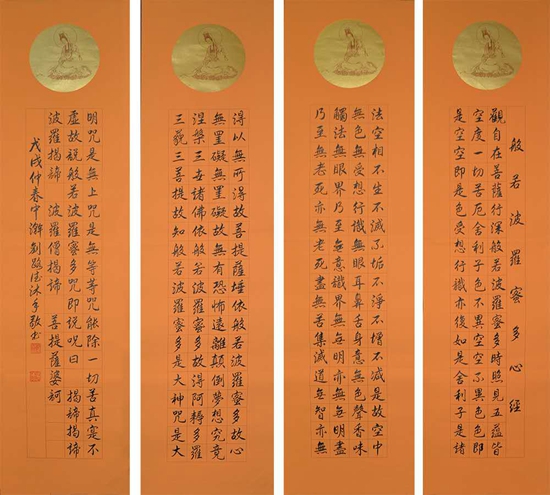 般若波羅蜜多心經
觀自在菩薩行深般若波羅蜜多時照見五蘊皆
空度一切苦厄舍利子色不異空空不異色色即
是空空即是色受想行識亦復如是舍利子是諸
法空相不生不滅不垢不淨不增不減是故空中
無色無受想行識無眼耳鼻舌身意無色聲香味
觸法無眼界乃至無意識界無無明亦無無明盡
乃至無老死亦無老死盡無苦集滅道無智亦無
得以無所得故菩提薩埵依般若波羅蜜多故心
無罣礙無罣礙故無有恐怖遠離顛倒夢想究竟
涅槃三世諸佛依般若波羅蜜多故得阿耨多羅
三藐三菩提故知般若波羅蜜多是大神咒是大
明咒是無上咒是無等等咒能除一切苦真寔不
虛故說般若波羅蜜多咒即說咒曰 揭諦揭諦
波羅揭諦 波羅僧揭諦 菩提薩婆訶
戊戌仲春中澣劉路沐手敬書